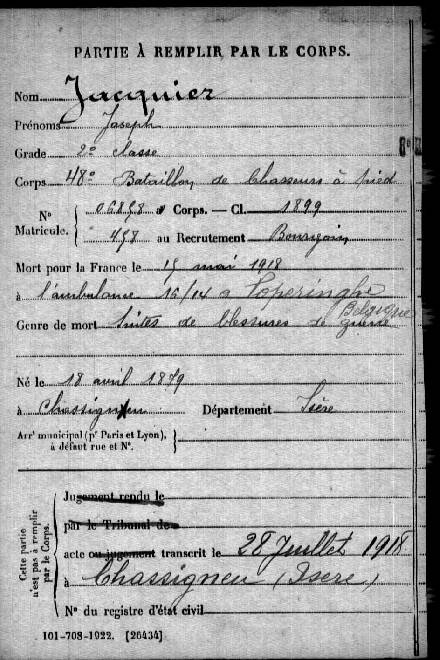 PARTIE À REMPLIR PAR LE CORPS.
Nom Jacquier
Prénoms Joseph
Grade 2e classe
Corps 48e Bataillon de Chasseurs à pied
N° Matricule. { 06898 au Corps. — Cl. 1899
498 au Recrutement Bourgoin
Mort pour la France le 15 mai 1918
à l'ambulance 16/14 à Poperinghe
Belgique
Genre de mort Suites de blessures de guerre
Né le 18 avril 1879
à Chassignieu Département Isère
Arrt municipal (pr Paris et Lyon),
à défaut rue et N°.
Cette partie n'est pas à remplir par le Corps.
Jugement rendu le
par le Tribunal de
acte ou jugement transcrit le 28 Juillet 1918
à Chassigneu (Isère)
N° du registre d'état civil
101-708-1922. [26434]